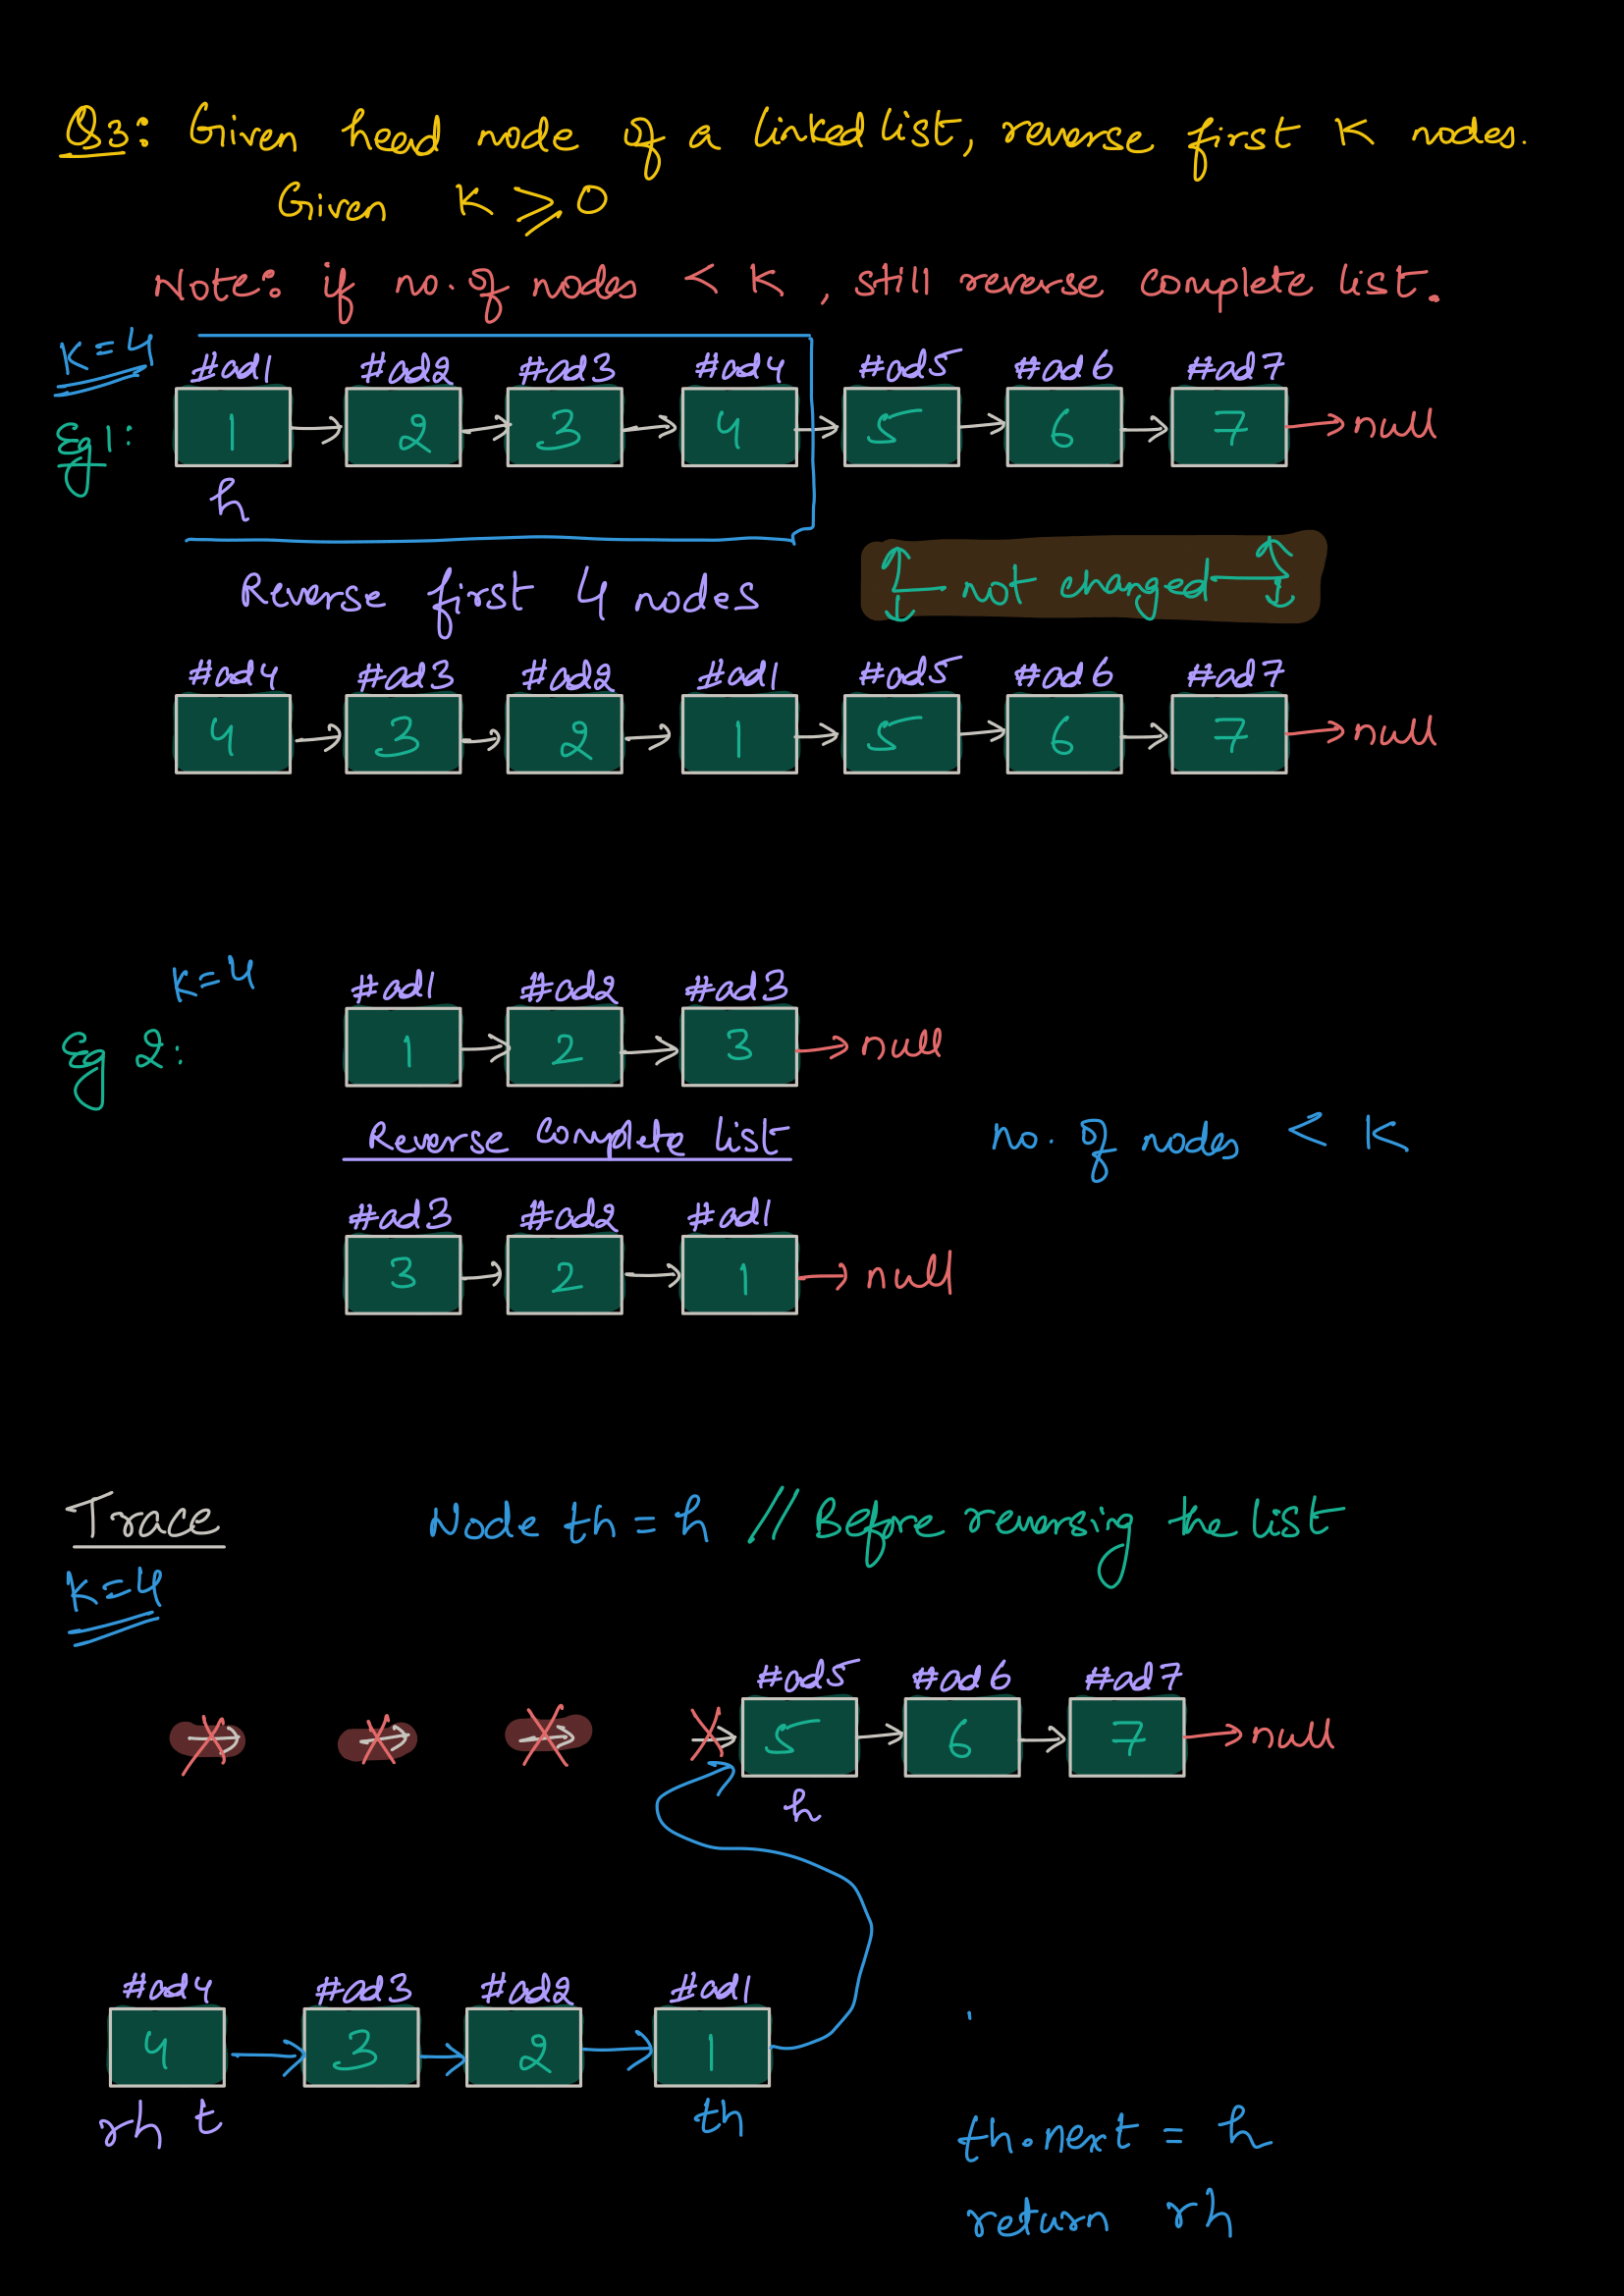 Q3: Given head node of a linked list, reverse first K nodes.
Given K ⩾ 0
Note: if no. of nodes < K, still reverse complete list.
K=4
#ad1 #ad2 #ad3 #ad4 #ad5 #ad6 #ad7
Eg1: 1 2 3 4 5 6 7 null
h
Reverse first 4 nodes
not changed
#ad4 #ad3 #ad2 #ad1 #ad5 #ad6 #ad7
4 3 2 1 5 6 7 null
K=4
#ad1 #ad2 #ad3
Eg 2: 1 2 3 null
Reverse Complete list
no. of nodes < K
#ad3 #ad2 #ad1
3 2 1 null
Trace
Node th = h // Before reversing the list
K=4
#ad5 #ad6 #ad7
5 6 7 null
h
#ad4 #ad3 #ad2 #ad1
4 3 2 1
rh t th
th.next = h
return rh